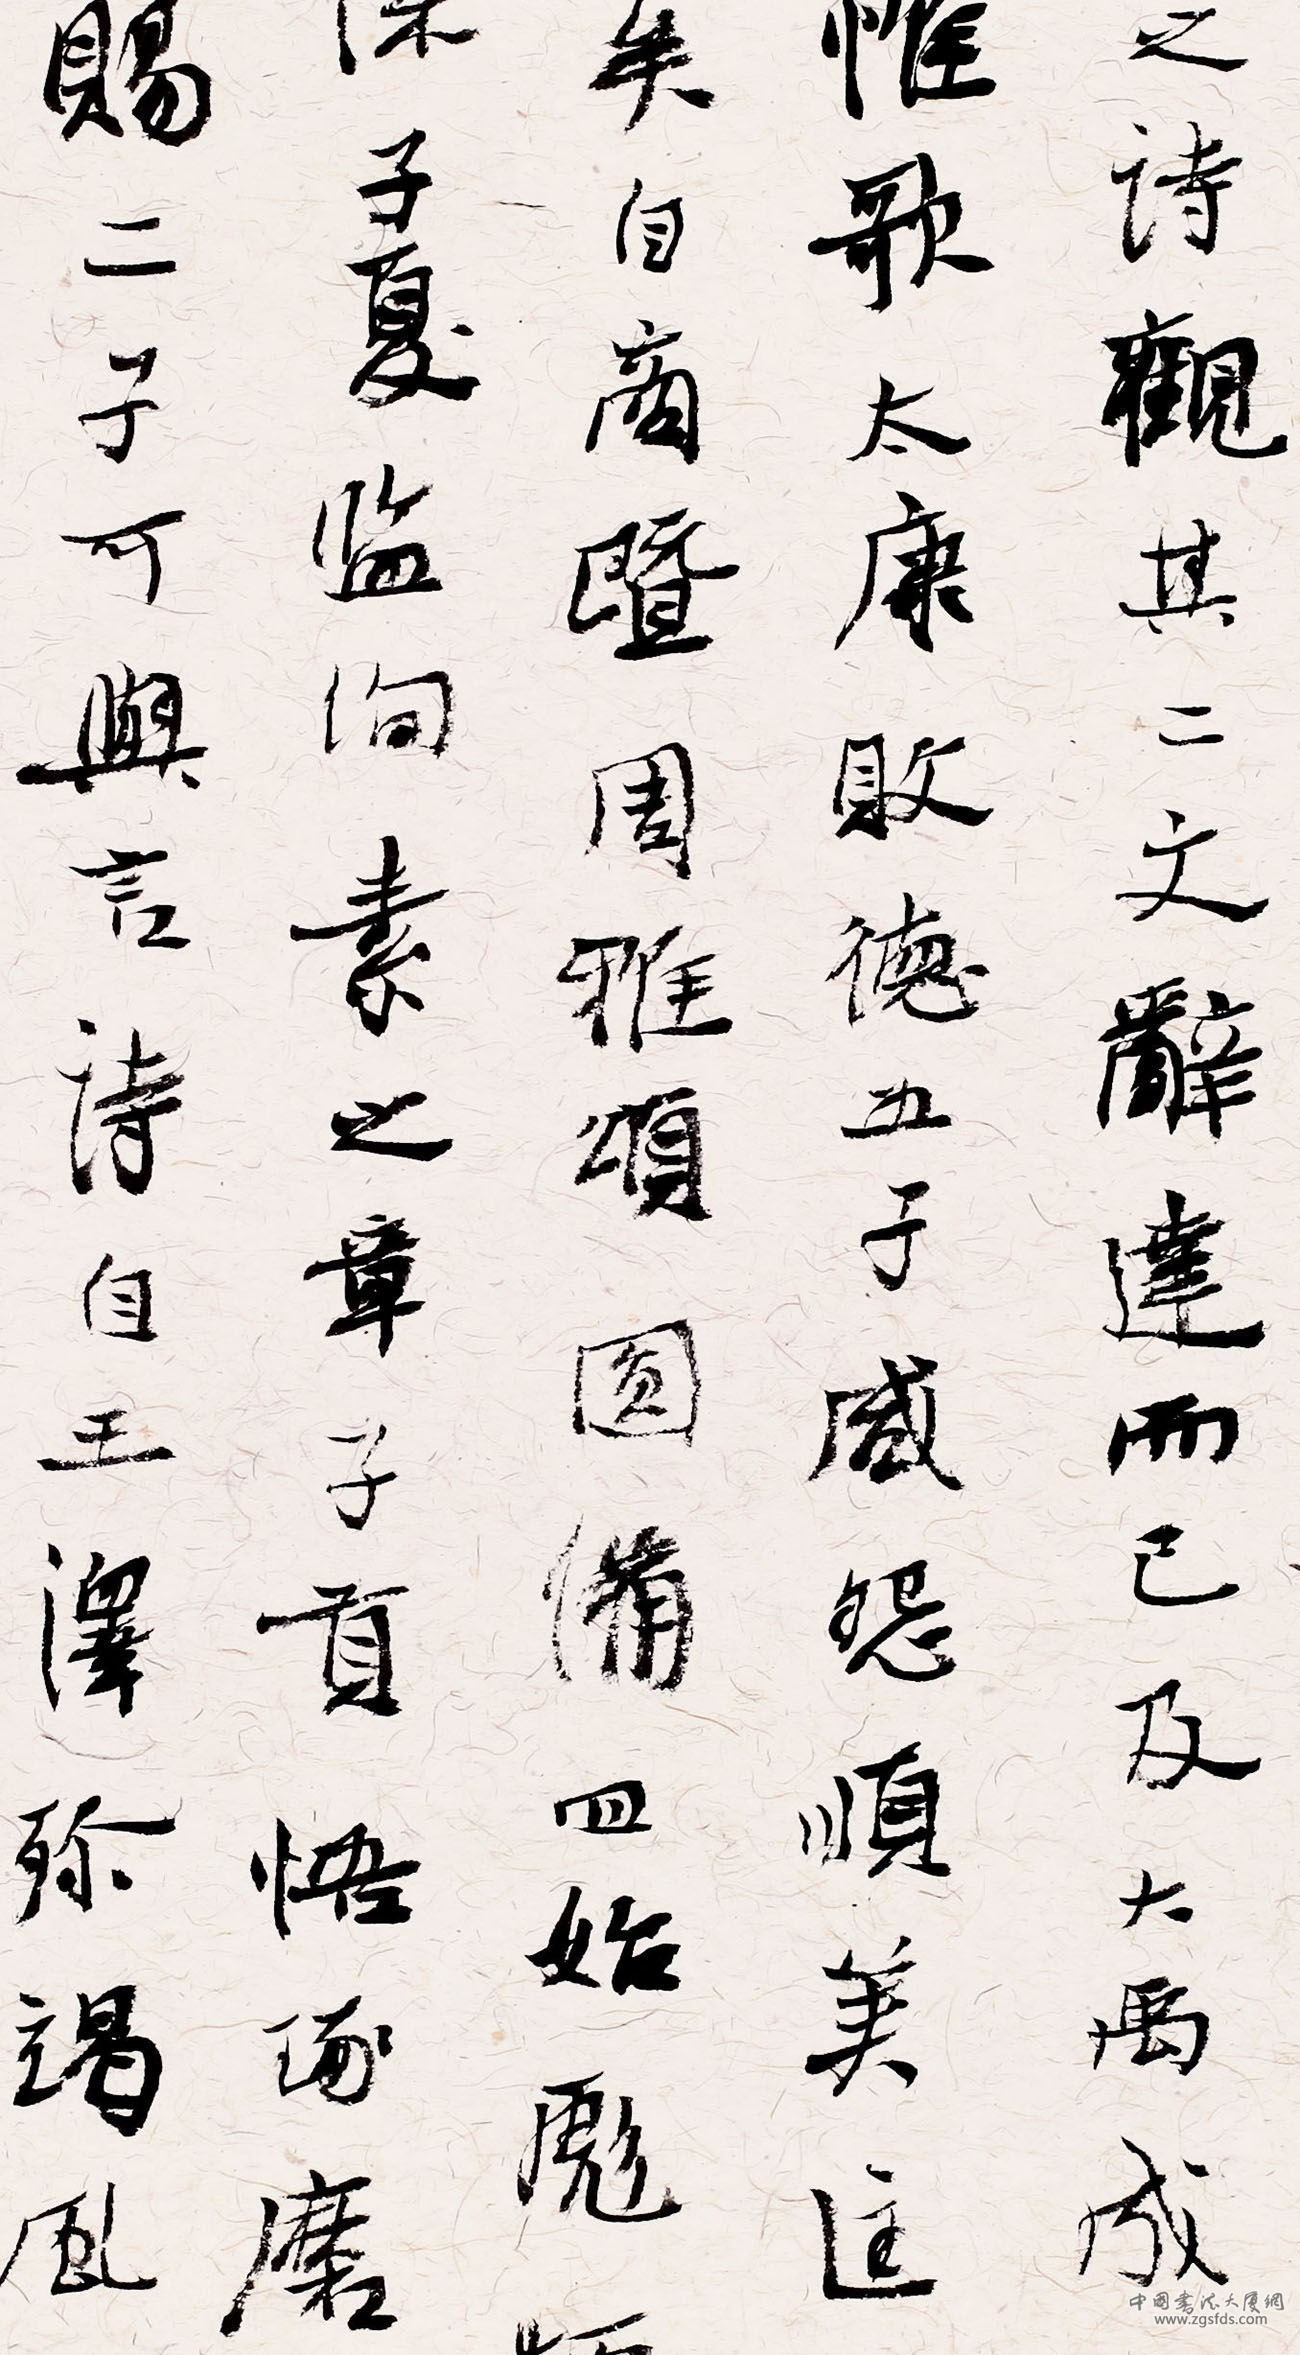 之詩觀其二文辭達而已及大禹成
惟歌太康敗德五子咸怨順美匡
矣自商暨周雅頌圓備四始彪
深子夏监绚素之章子貢悟琢磨
賜二子可與言詩自王澤殄竭風
中国书法大厦網
www.zgsfds.com